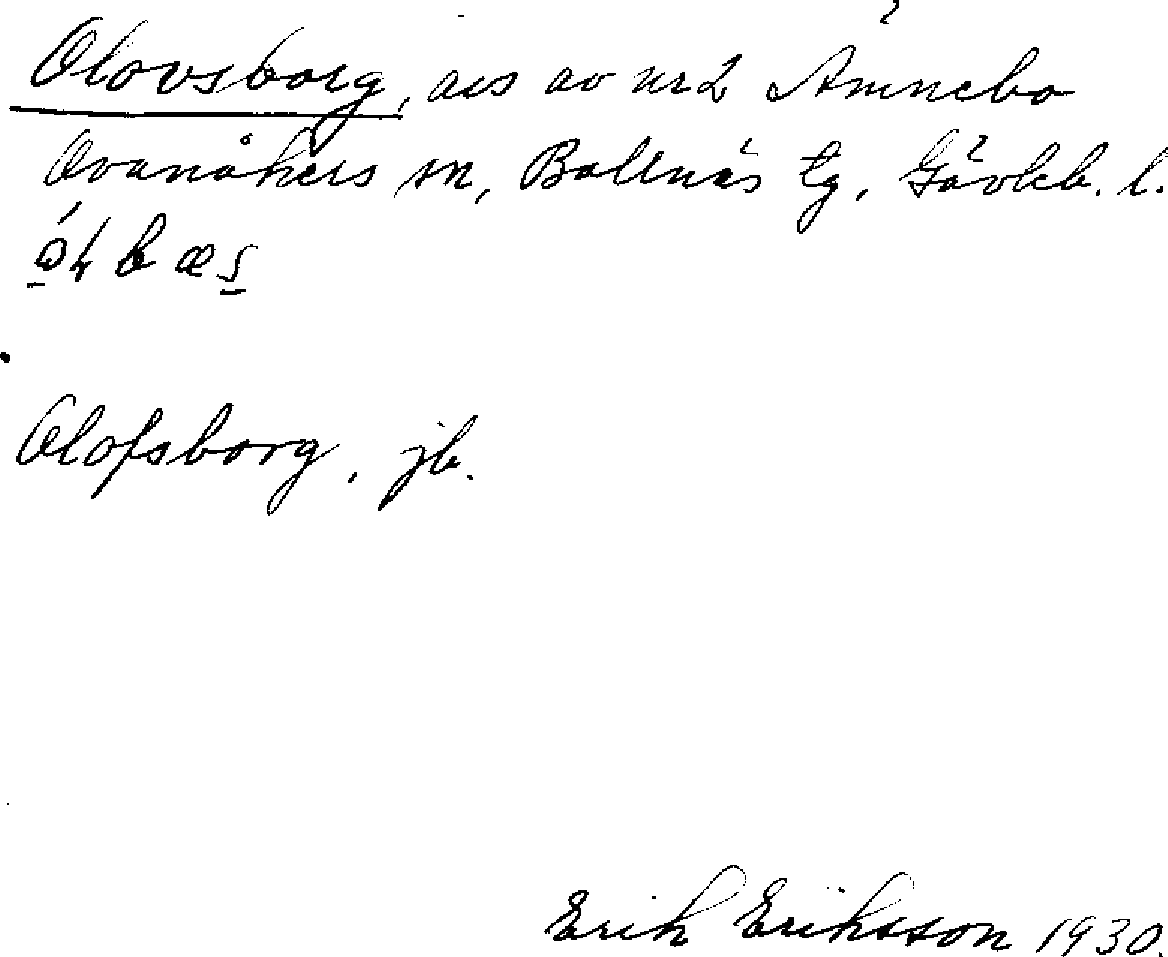 Olovsborg, avs av nr 2 Ämnebo
Ovanåkers sn, Bollnäs tg, Gävleb. l.
Olofsborg, jb.
Erik Eriksson 1930.